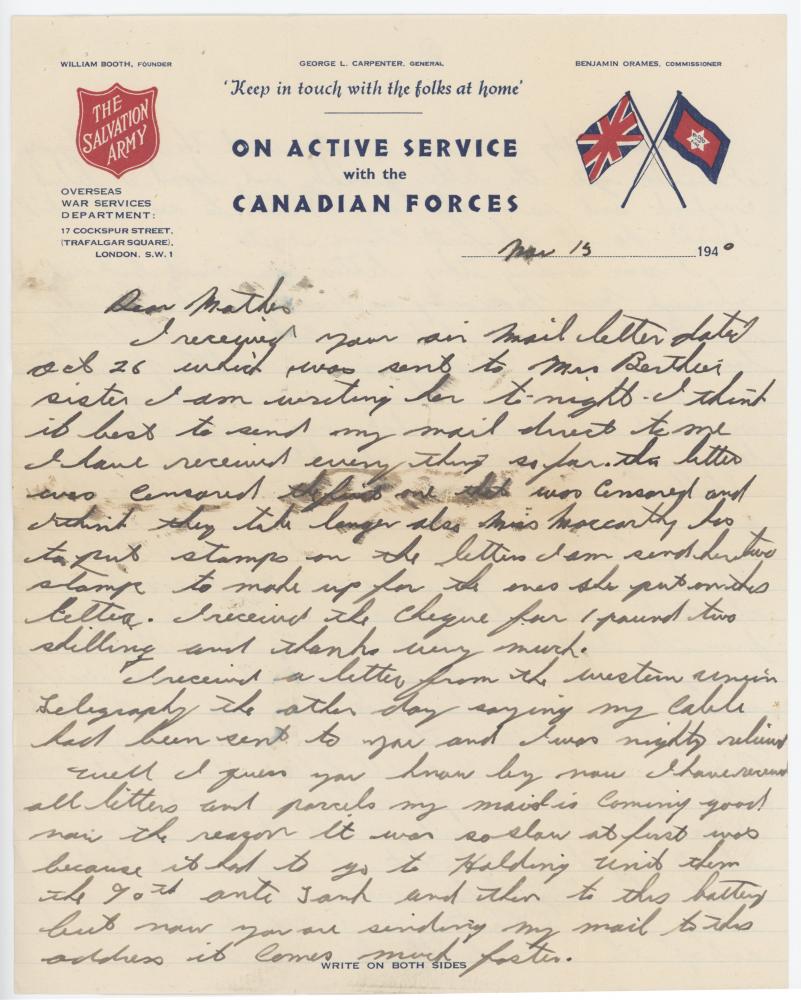 WILLIAM BOOTH, FOUNDER
GEORGE L. CARPENTER, GENERAL
BENJAMIN ORAMES, COMMISSIONER
THE
SALVATION
ARMY
'Keep in touch with the folks at home'
ON ACTIVE SERVICE
with the
CANADIAN FORCES
OVERSEAS
WAR SERVICES
DEPARTMENT:
17 COCKSPUR STREET,
(TRAFALGAR SQUARE),
LONDON. S.W. 1
Nov 15 1940
Dear Mother
I received your air mail letter dated
Oct 26 which was sent to Mrs
sister I am writing her to-night. I think
it best to send my mail direct to me
I have received every thing so far. this letter
was Censored the first one that was Censored and
I think they take longer also Miss Maccarthy has
to put stamps on the letters I am send her two
stamps to made up for the ones she put on this
letter. I received the Cheque for 1 pound two
shilling and thanks very much.
I received a letter from the western union
Telegraph the other day saying my Cable
had been sent to you and I was mighty relieved
well I guess you know by now I have received
all letters and parcels my mail is Coming good
now the reason it was so slow at first was
because it had to go to Holding Unit them
the 90th ante Tank and then to this battery
but now you are sending my mail to this
address it Comes much faster.
WRITE ON BOTH SIDES